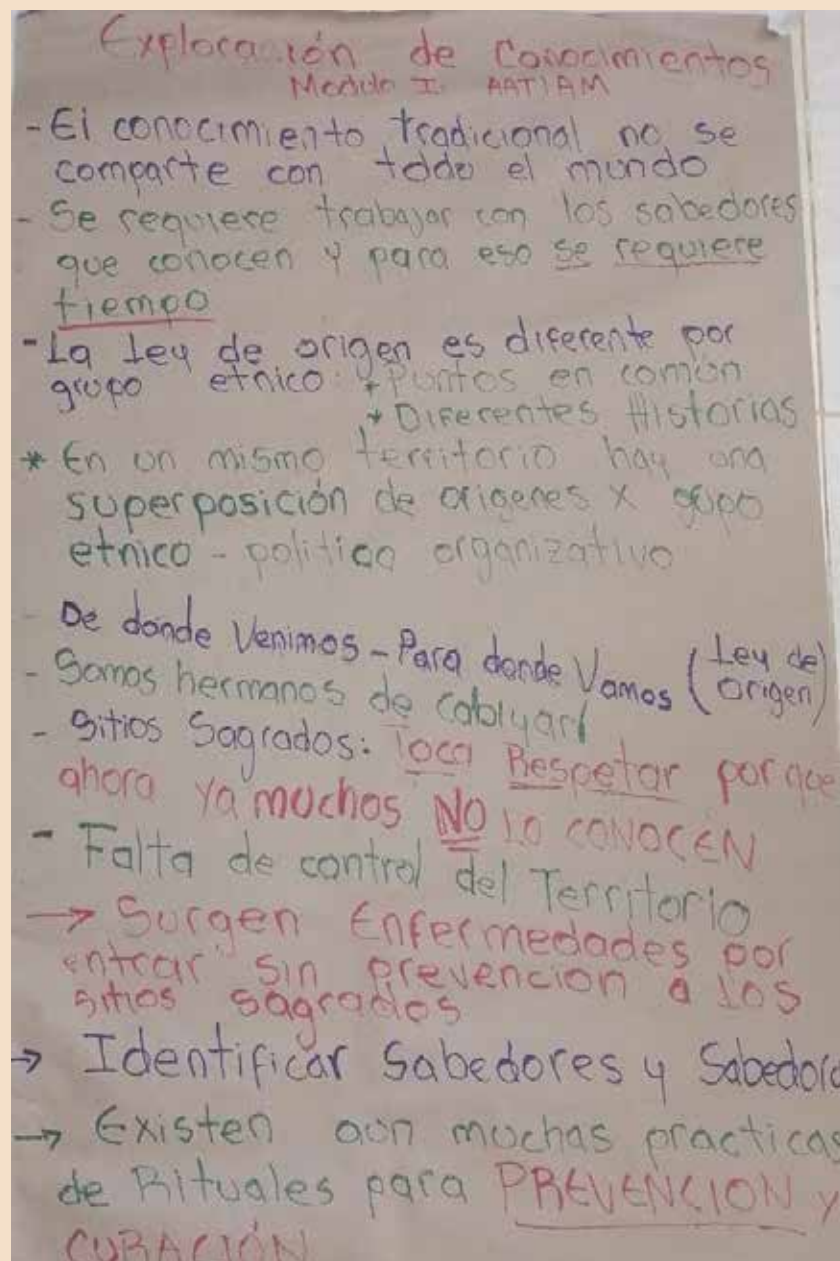 Exploración de Conocimientos
Modulo I. AATIAM
- El conocimiento tradicional no se
comparte con todo el mundo
- Se requiere trabajar con los sabedores
que conocen y para eso se requiere
tiempo
- La Ley de origen es diferente por
grupo etnico: * Puntos en común
* Diferentes Historias
* En un mismo territorio hay una
superposición de origenes x grupo
etnico - politico organizativo
- De donde Venimos - Para donde Vamos (Ley de
origen)
- Somos hermanos de
- Sitios Sagrados: Toca Respetar porque
ahora ya muchos NO LO CONOCEN
- Falta de control del Territorio
→ Surgen Enfermedades por
entrar sin prevencion a los
sitios sagrados
→ Identificar Sabedores y Sabedora
→ Existen aun muchas practicas
de Rituales para PREVENCION y
CURACIÓN